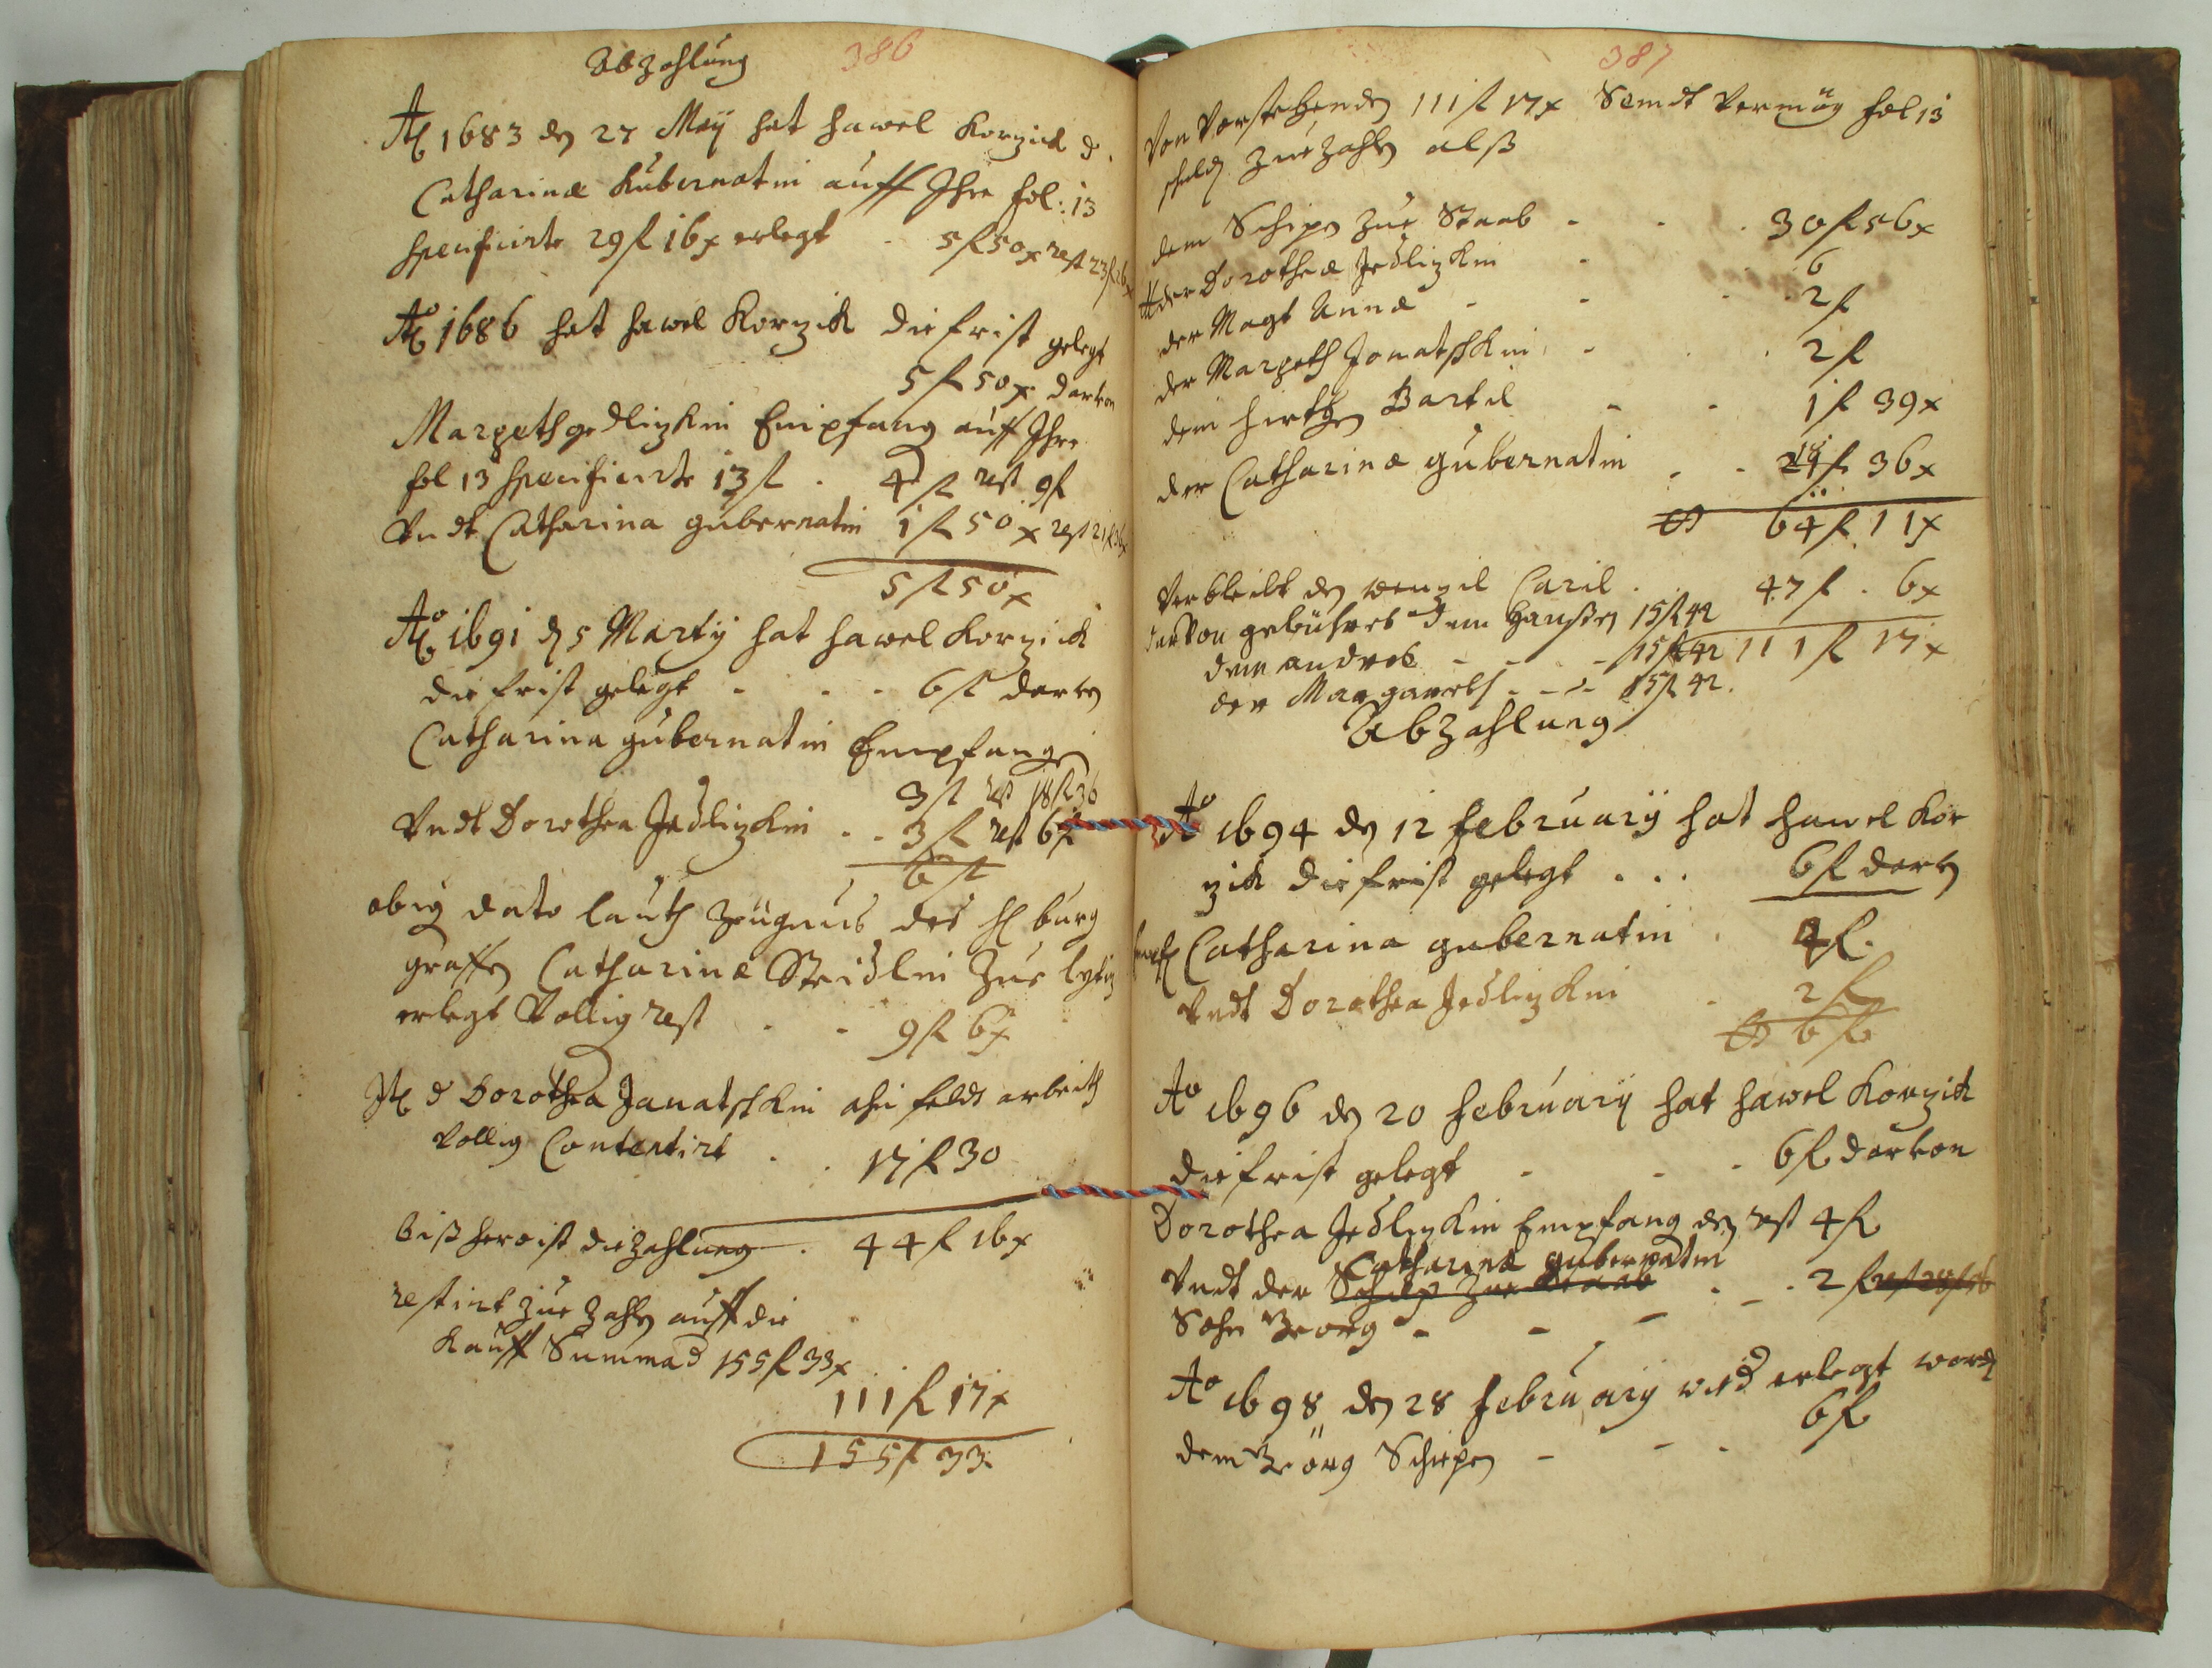 Abzahlung 386
Ao 1683 den 27 Maÿ hat Hawel Korzick d.
Catharinæ Kubernatin auff Ihre fol: 13
specificirte 29 fl 16 x erlegt . 5 fl 50 x rest 23 fl 26 x
Ao 1686 hat Hawel Korzick die frist gelegt
5 fl 50 x darvon
Margeth Jedlizkin Empfang auff Ihre
fol 13 specificirte 13 fl . 4 fl rest 9 fl
Undt Catharina gubernatin 1 fl 50 x rest 21 fl 36 x
5 fl 50 x
Ao 1691 den 5 Martÿ hat Hawel Korzick
die frist gelegt - - - 6 fl darvon
Catharina gubernatin Empfangen
3 fl rest 18 fl 36
Undt Dorothea Jedlizkin - - 3 fl rest 6 fl
6 fl
obig dato lauth Zeugnus des H burg
graffen Catharinæ Steidlin zue
erlegt Vollig rest - - 9 fl 6 x
It d Dorothea Janatschkin ahn feldt arbeith
Vollig Contentirt . . 17 fl 30
bißhero ist die Zahlung . 44 fl 16 x
restirt zue Zahlen auff die
Kauff Summa d 155 fl 33 x
111 fl 17 x
155 fl 33
387
Von Vorstehenden 111 fl 17 x Seindt Vermög fol 13
schuldt zue Zahlen alß
dem Schipen zue Staab - - . 30 fl 56 x
der Dorothea Jedlizkin - 6
der Magt Anna - - . 2 fl
der Margeth Jonatschkin - . 2 fl
dem Hirthen Bartel - - 1 fl 39 x
der Catharina gubernatin - - 18 fl 36 x
64 fl 11 x
Verbleibt den wenzil Caril . 47 fl . 6 x
darvon gebühret dem Hanßen 15 fl 42
dem andres - - - 15 fl 42 111 fl 17 x
der Margareth - - - 15 fl 42.
Abzahlung
Ao 1694 den 12 february hat Hawel Kor
zick die frist gelegt . . . 6 fl darvon
Catharina gubernatin . 4 fl.
Undt Dorothea Jedlizkin . 2 fl
6 fl
Ao 1696 den 20 februarÿ hat Hawel Korzick
die frist gelegt - - - 6 fl darvon
Dorothea Jedlizkin Empfang den rest 4 fl
Catharina gubernatin
Undt der Schip zue Staab - - 2 fl rest 28 fl 56
Sohn Georg - - -
Ao 1698 den 28 february wid erlegt worden
6 fl
dem Georg Schipen - - -